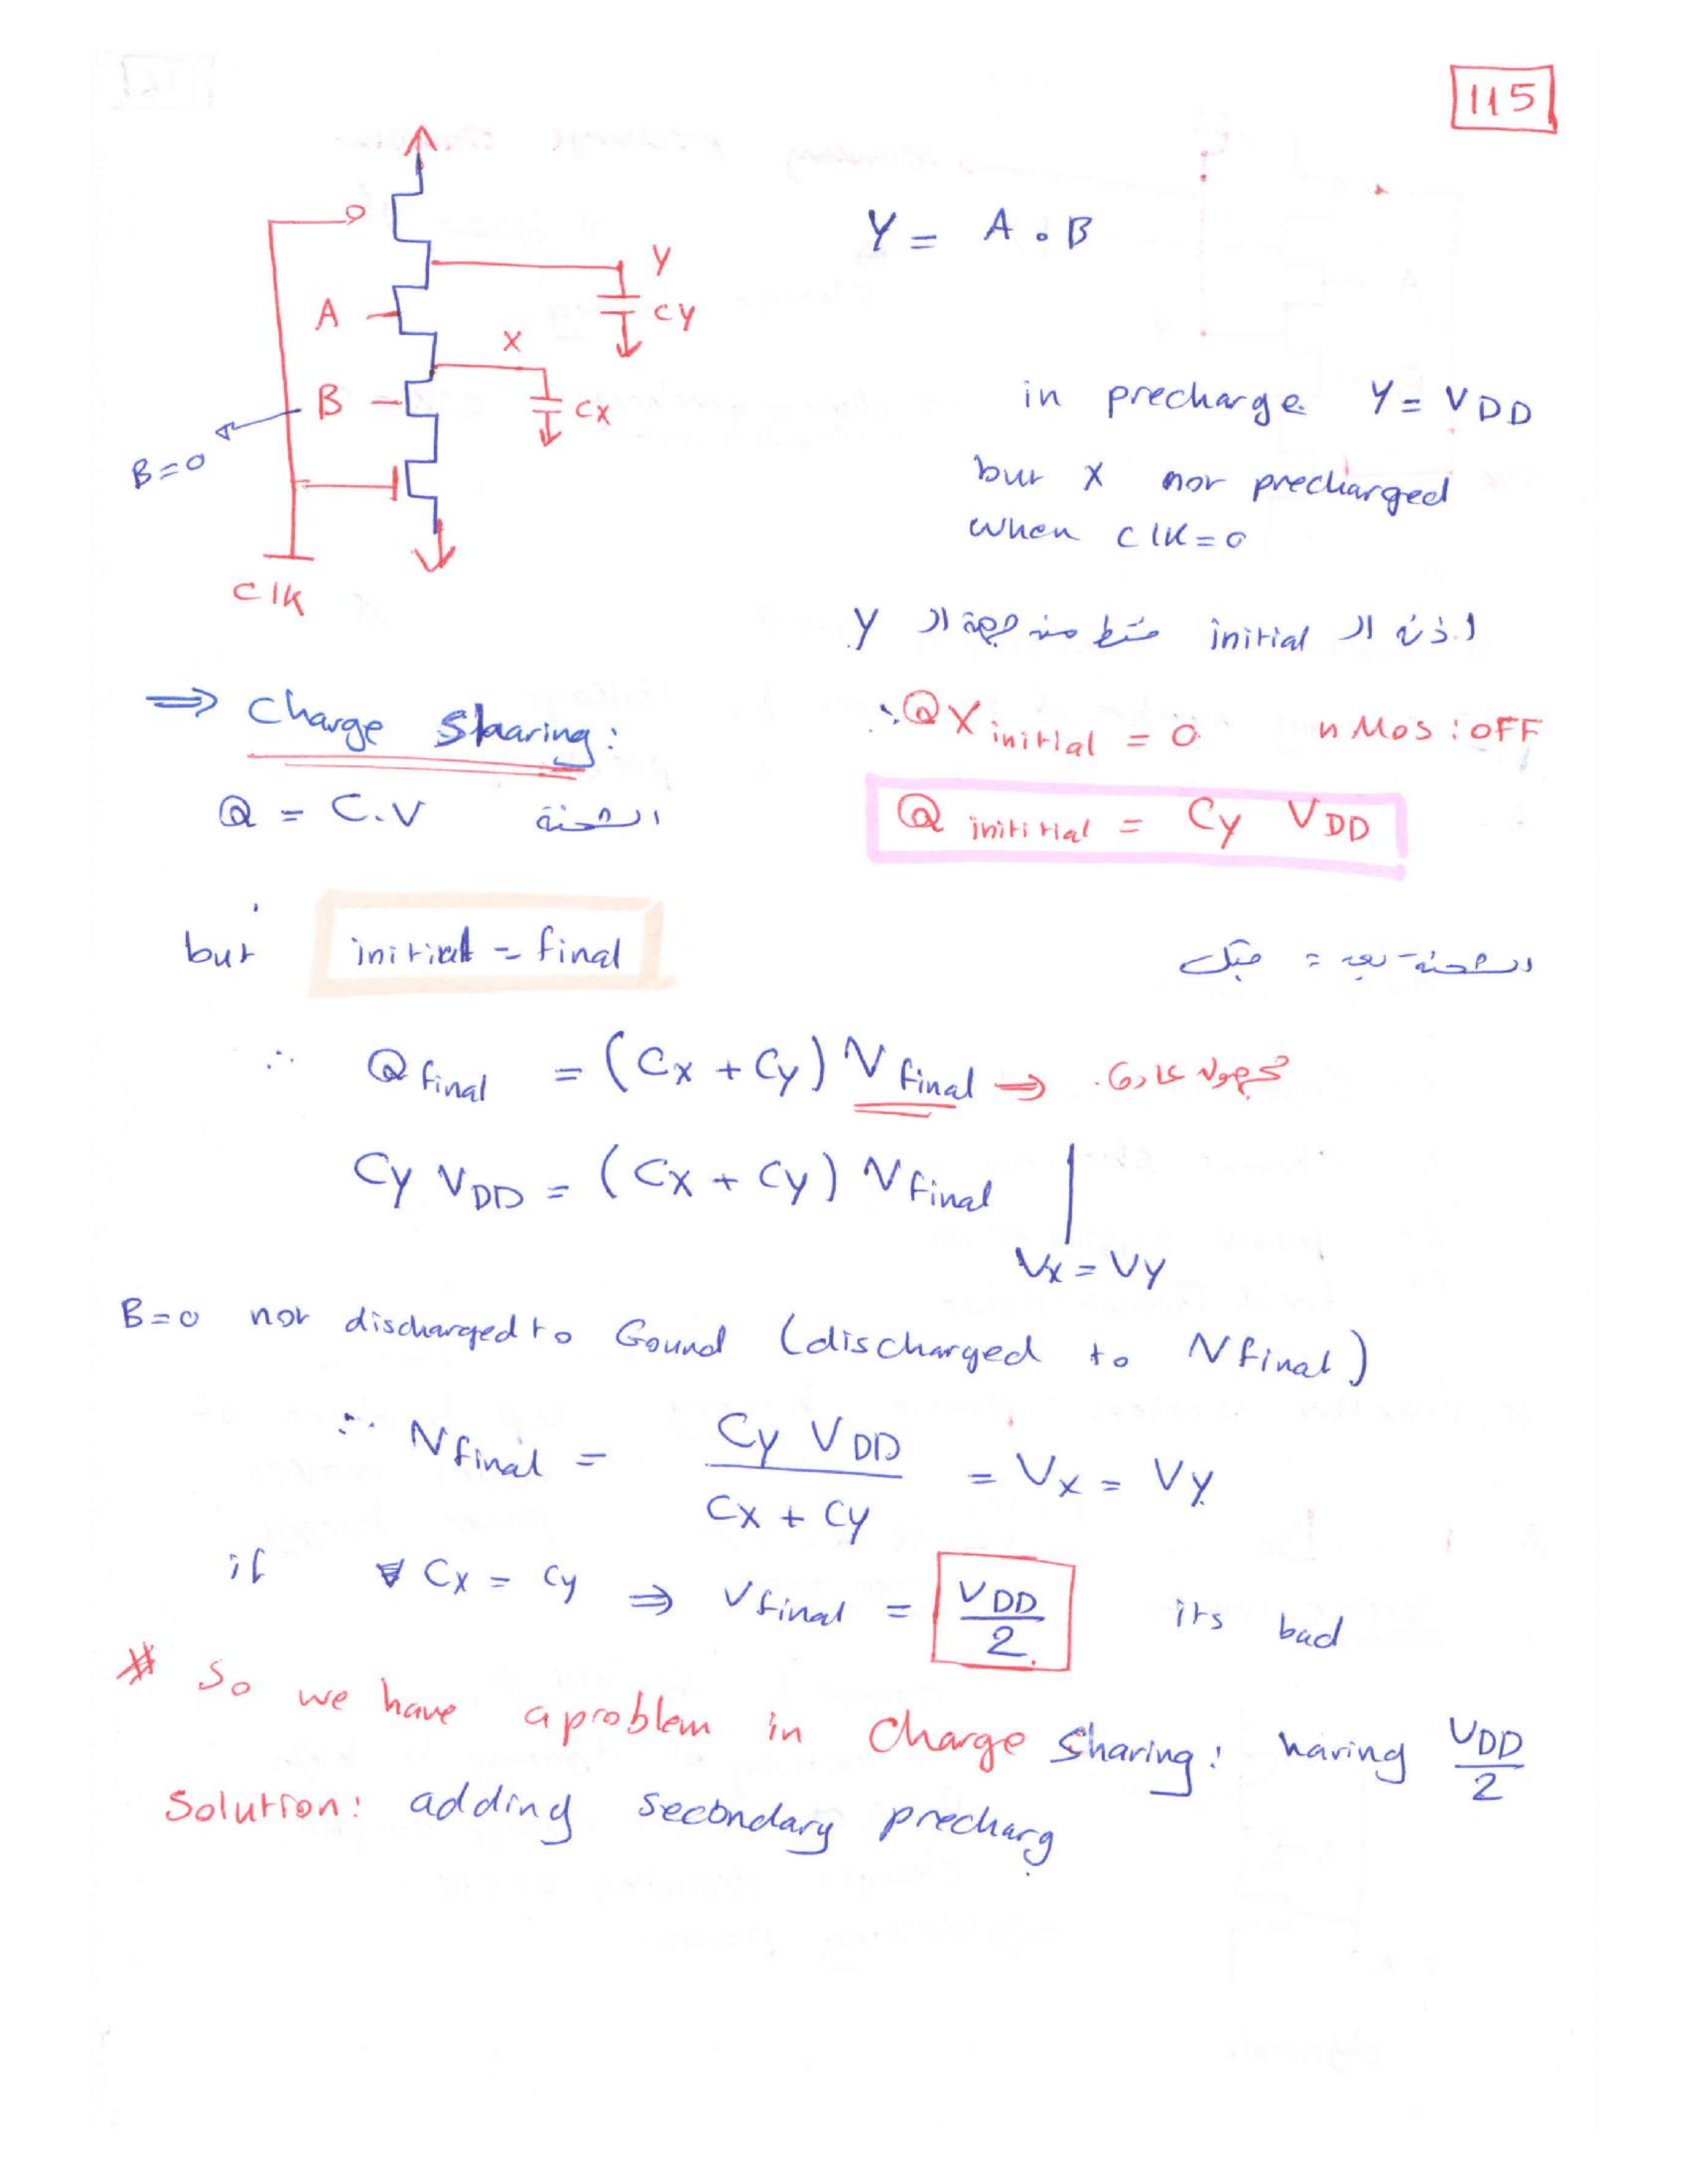 115
Y = A . B
Y
A
CY
X
B
CX
B=0
Clk
in precharge Y = VDD
but X not precharged
when clk=0
اذن ال initial فقط من جهة ال Y
⇒ Charge Sharing:
∴ QX initial = 0 nMos : OFF
Q = C.V الشحنة
Q inititial = CY VDD
but initial = final
الشحنة بعد = قبل
∴ Q final = (CX + CY) V final ⇒ مجهول عادي.
CY VDD = (CX + CY) V final | VX = VY
B=0 not discharged to Gound (discharged to V final)
∴ V final = CY VDD / CX + CY = VX = VY
if CX = CY ⇒ V final = VDD / 2 its bad
* So we have a problem in Charge Sharing: having VDD / 2
Solution: adding secondary precharg